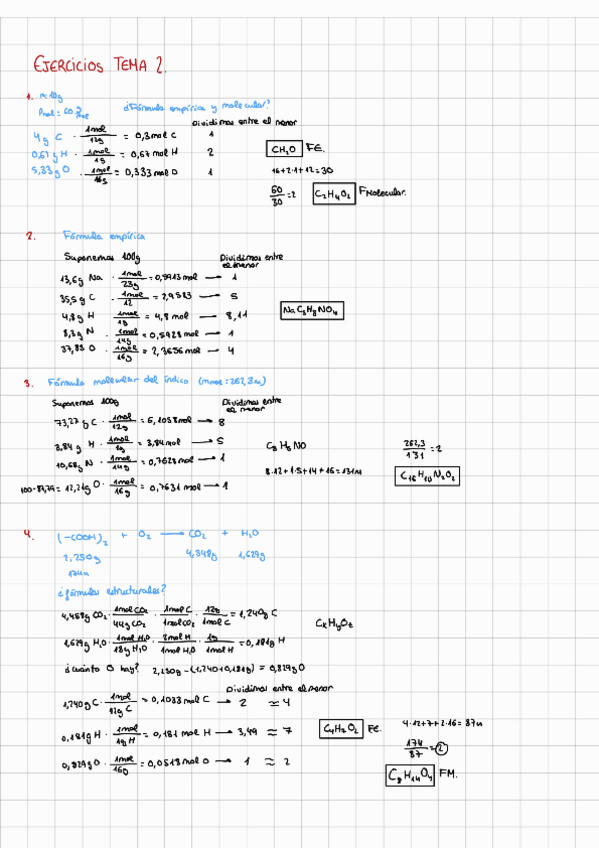 EJERCICIOS TEMA 2.
1. m=10g
Pmol = 60 g/mol ¿Fórmula empírica y molecular?
Dividimos entre el menor
4g C · 1mol/12g = 0,3 mol C 1
0,67g H · 1mol/1g = 0,67 mol H 2 CH2O FE.
5,33g O · 1mol/16g = 0,333 mol O 1 16+2·1+12=30
60/30 = 2 C2H4O2 FMolecular.
2. Fórmula empírica
Suponemos 100g Dividimos entre el menor
13,6g Na · 1mol/23g = 0,5913 mol → 1
35,5g C · 1mol/12 = 2,9583 → 5
4,8g H · 1mol/1g = 4,8 mol → 8,11 NaC5H8NO4
8,3g N · 1mol/14g = 0,5928 mol → 1
37,85 O · 1mol/16g = 2,3656 mol → 4
3. Fórmula molecular del índico (mmol = 262,3u)
Suponemos 100g Dividimos entre el menor
73,27g C · 1mol/12g = 6,1058 mol → 8
3,84g H · 1mol/1g = 3,84 mol → 5 C8H5NO 262,3/131 = 2
10,68g N · 1mol/14g = 0,7628 mol → 1 8·12+1·5+14+16=131u
C16H10N2O2
100-87,79 = 12,21g O · 1mol/16g = 0,7631 mol → 1
4. (-COOH)2 + O2 → CO2 + H2O
2,250g 4,548g 1,629g
174u
¿fórmulas estructurales?
4,458g CO2 · 1mol CO2/44g CO2 · 1mol C/1mol CO2 · 12g/1mol C = 1,240g C CxHyOz
1,629g H2O · 1mol H2O/18g H2O · 2mol H/1mol H2O · 1g/1mol H = 0,181g H
¿Cuánto O hay? 2,250g - (1,240+0,181g) = 0,829g O
Dividimos entre el menor
1,240g C · 1mol/12g C = 0,1033 mol C → 2 ≈ 4
0,181g H · 1mol/1g H = 0,181 mol H → 3,49 ≈ 7 C4H7O2 FE. 4·12+7+2·16 = 87u
174/87 = 2
0,829g O · 1mol/16g = 0,0518 mol O → 1 ≈ 2 C8H14O4 FM.